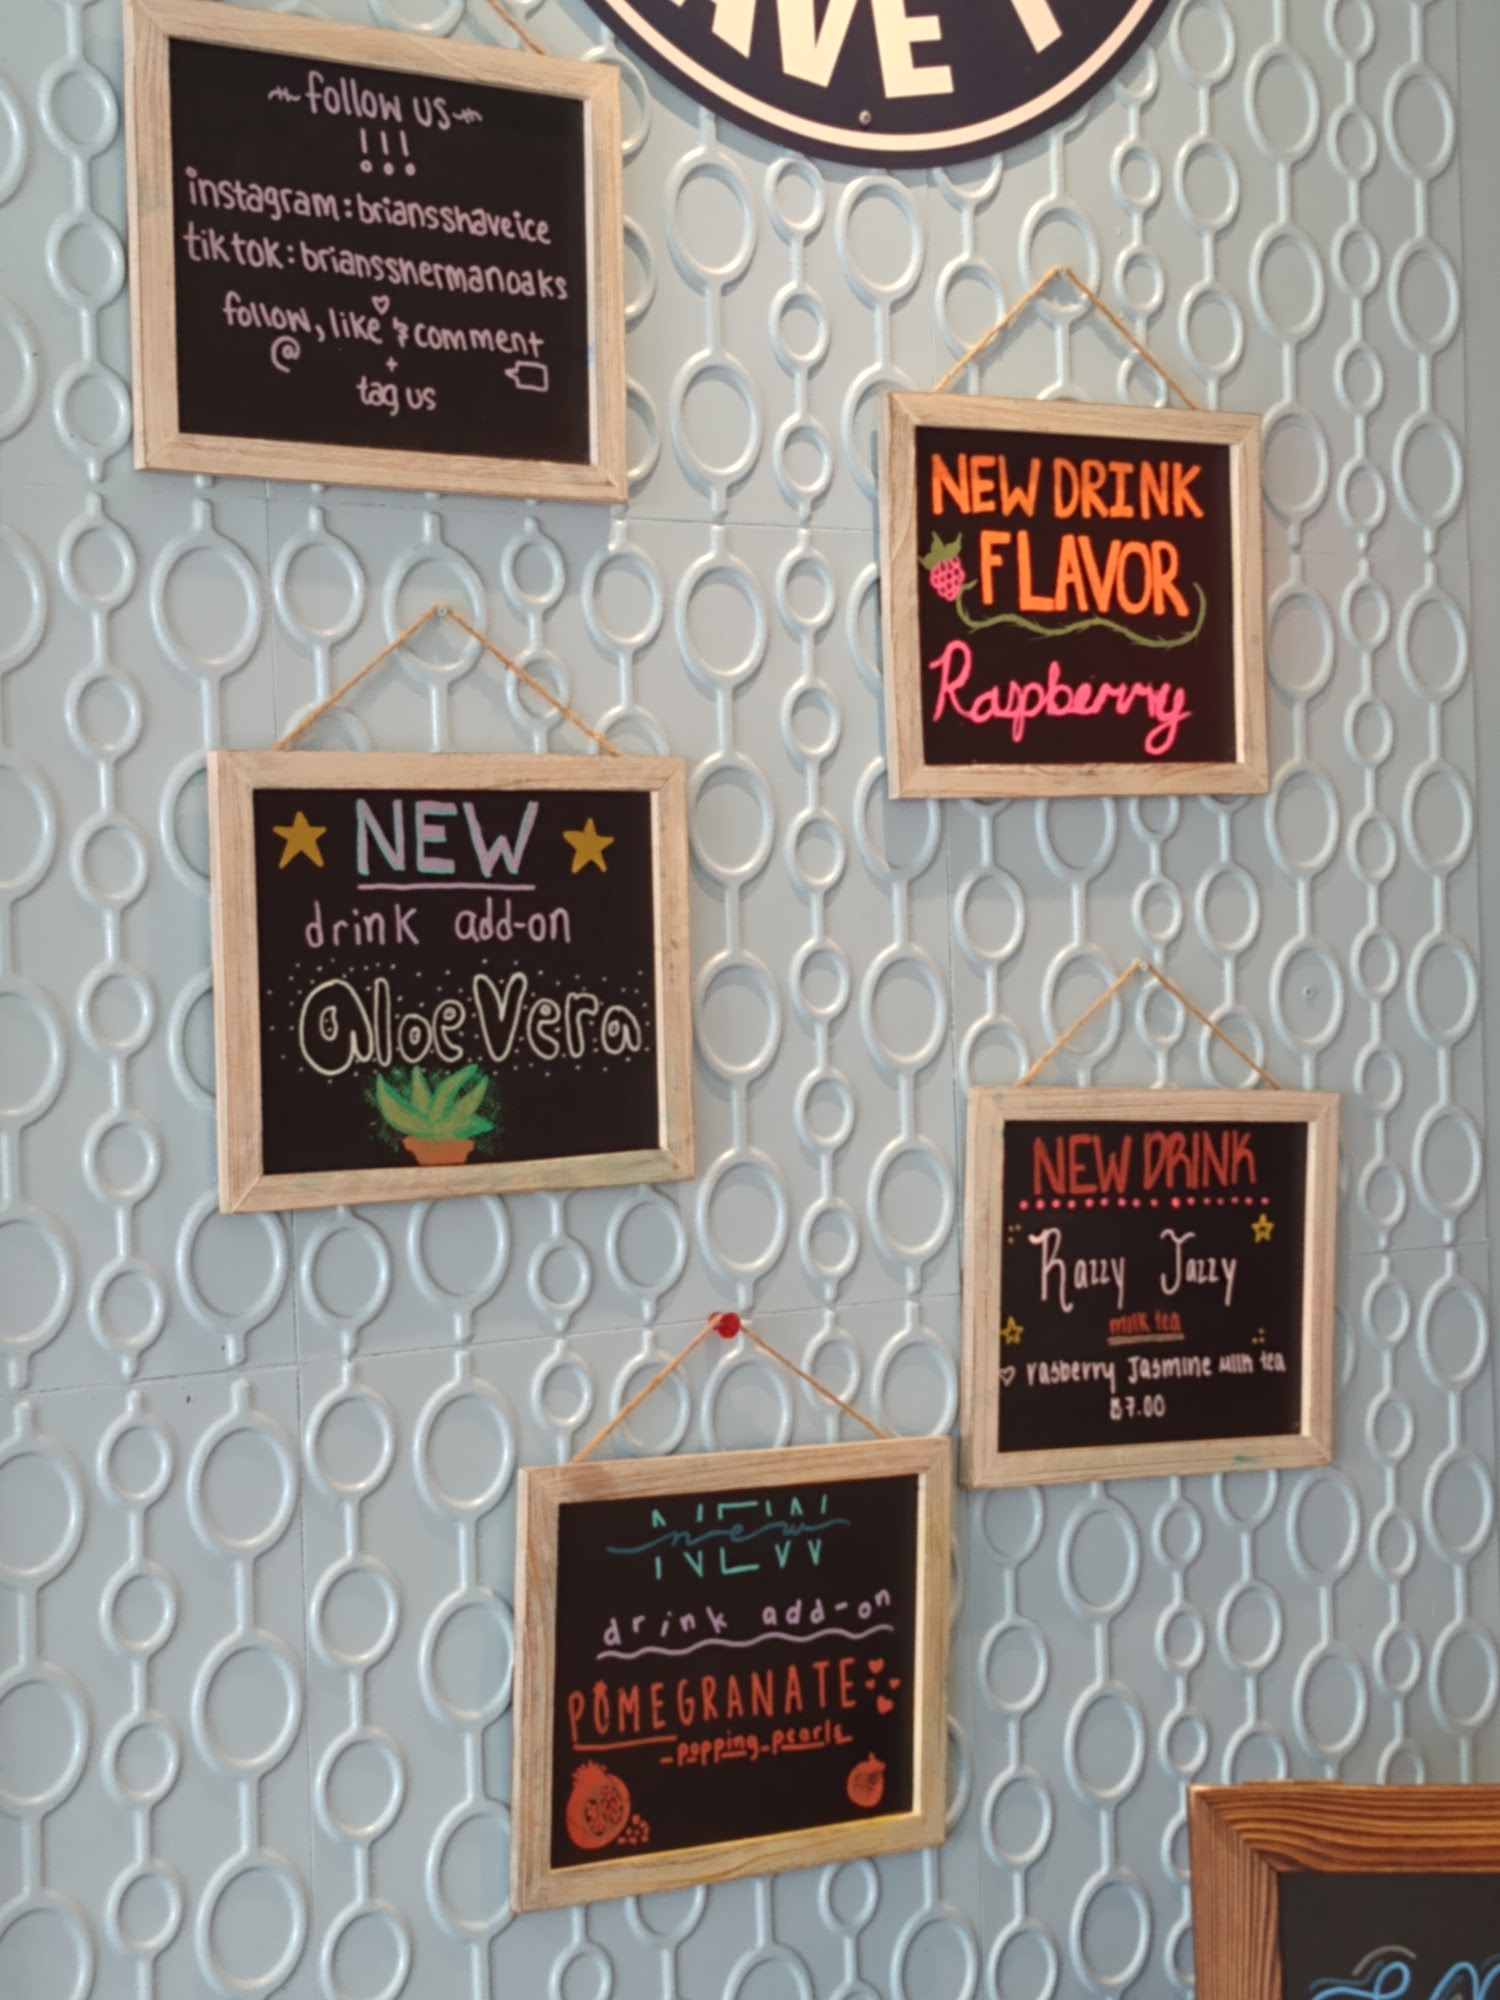 AVE I
follow us
!!!
instagram:briansshaveice
tiktok:briansshermanoaks
follow, like & comment
@
+
tag us
NEW DRINK
FLAVOR
Raspberry
NEW
drink add-on
aloe Vera
NEW DRINK
Razzy Jazzy
milk tea
rasberry Jasmine milk tea
$7.00
NEW
new
drink add-on
POMEGRANATE
-popping-pearls